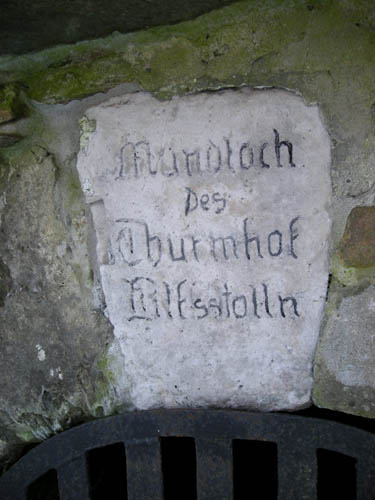 Mundloch
Des
Thurmhof
Hilfsstolln